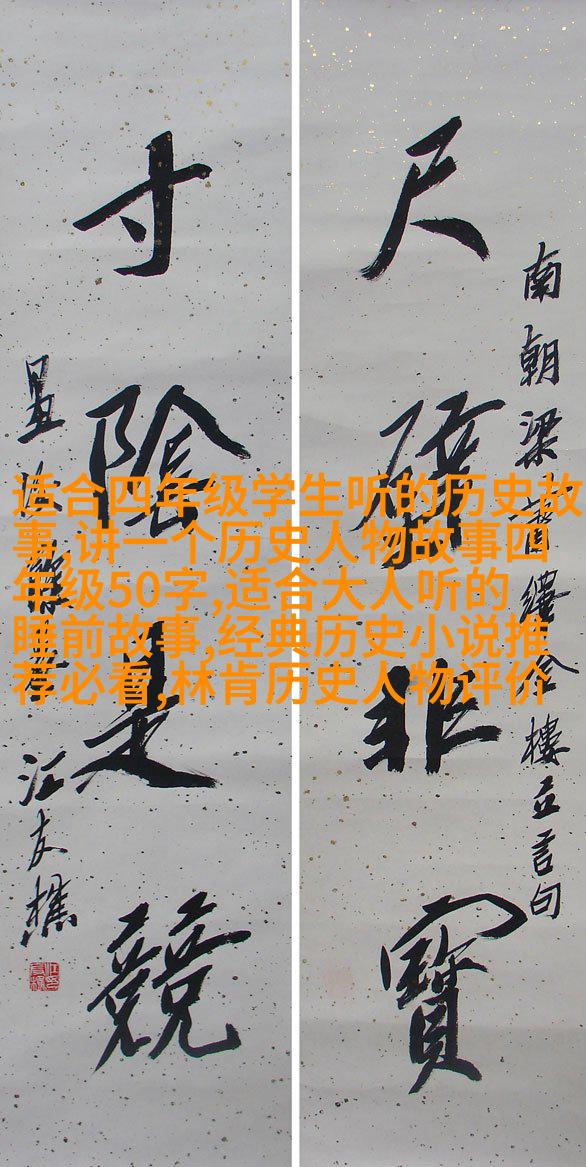 南朝梁蕭繹金樓立言句
尺璧非寶
寸陰是競
江友樵
适合四年级学生听的历史故
事,讲一个历史人物故事四
年级50字,适合大人听的
睡前故事,经典历史小说推
荐必看,林肯历史人物评价